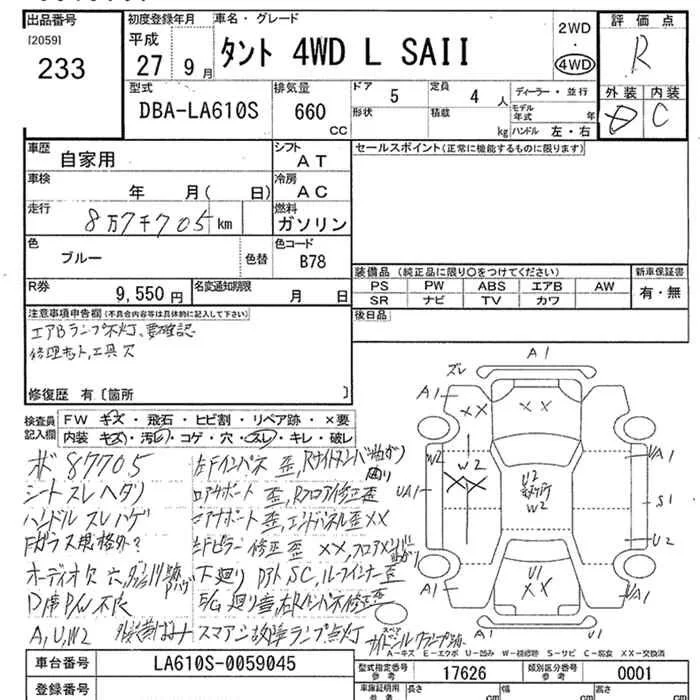 出品番号
[2059]
233
初度登録年月
平成
27 9月
車名・グレード
タント 4WD L SAII
2WD
・
4WD
評価点
R
外装 内装
D C
型式
DBA-LA610S
排気量
660
CC
ドア
5
定員
4 人
ディーラー・並行
形状
積載
kg
モデル年式 年
ハンドル 左・右
車歴
自家用
シフト
AT
セールスポイント(正常に機能するものに限ります)
車検
年 月( 日)
冷房
AC
走行
8万7千705 km
燃料
ガソリン
色
ブルー
色替
色コード
B78
装備品 (純正品に限り〇をつけてください)
新車保証書
PS PW ABS エアB AW
SR ナビ TV カワ
有・無
R券
9,550 円
名変通知期限
月 日
後日品
注意事項申告欄(不具合内容等は具体的に記入して下さい)
エアBランプ不灯、要確認
修理キット,工具欠
修復歴 有〔箇所 〕
検査員記入欄
FW キズ・飛石・ヒビ割・リペア跡・×要
内装 キズ・汚レ・コゲ・穴・スレ・キレ・破レ
87705
シートスレヘタリ
ハンドルスレハゲ
Fガラス規格外?
オーディオ欠
D席P/W不良
A,U,W2
左Fインパネ歪
ロアサポート歪,Rフロア修正歪
エンドパネル歪××
修正歪 ××,
下廻り
スマアシ故障ランプ点灯
A1
ズレ
A1
A1
××
××
W2
W2
××
UA1
U2
W2
UA1
S1
U2
U1
××
A1
A1
A1
U1
スペア
A-キズ E-エクボ U-凹み W-補修跡 S-サビ C-腐食 ××-交換済
車台番号
LA610S-0059045
型式指定番号
参考
17626
類別区分番号
参考
0001
登録番号
車庫証明用
参考
長さ
cm
幅
cm
高さ
cm